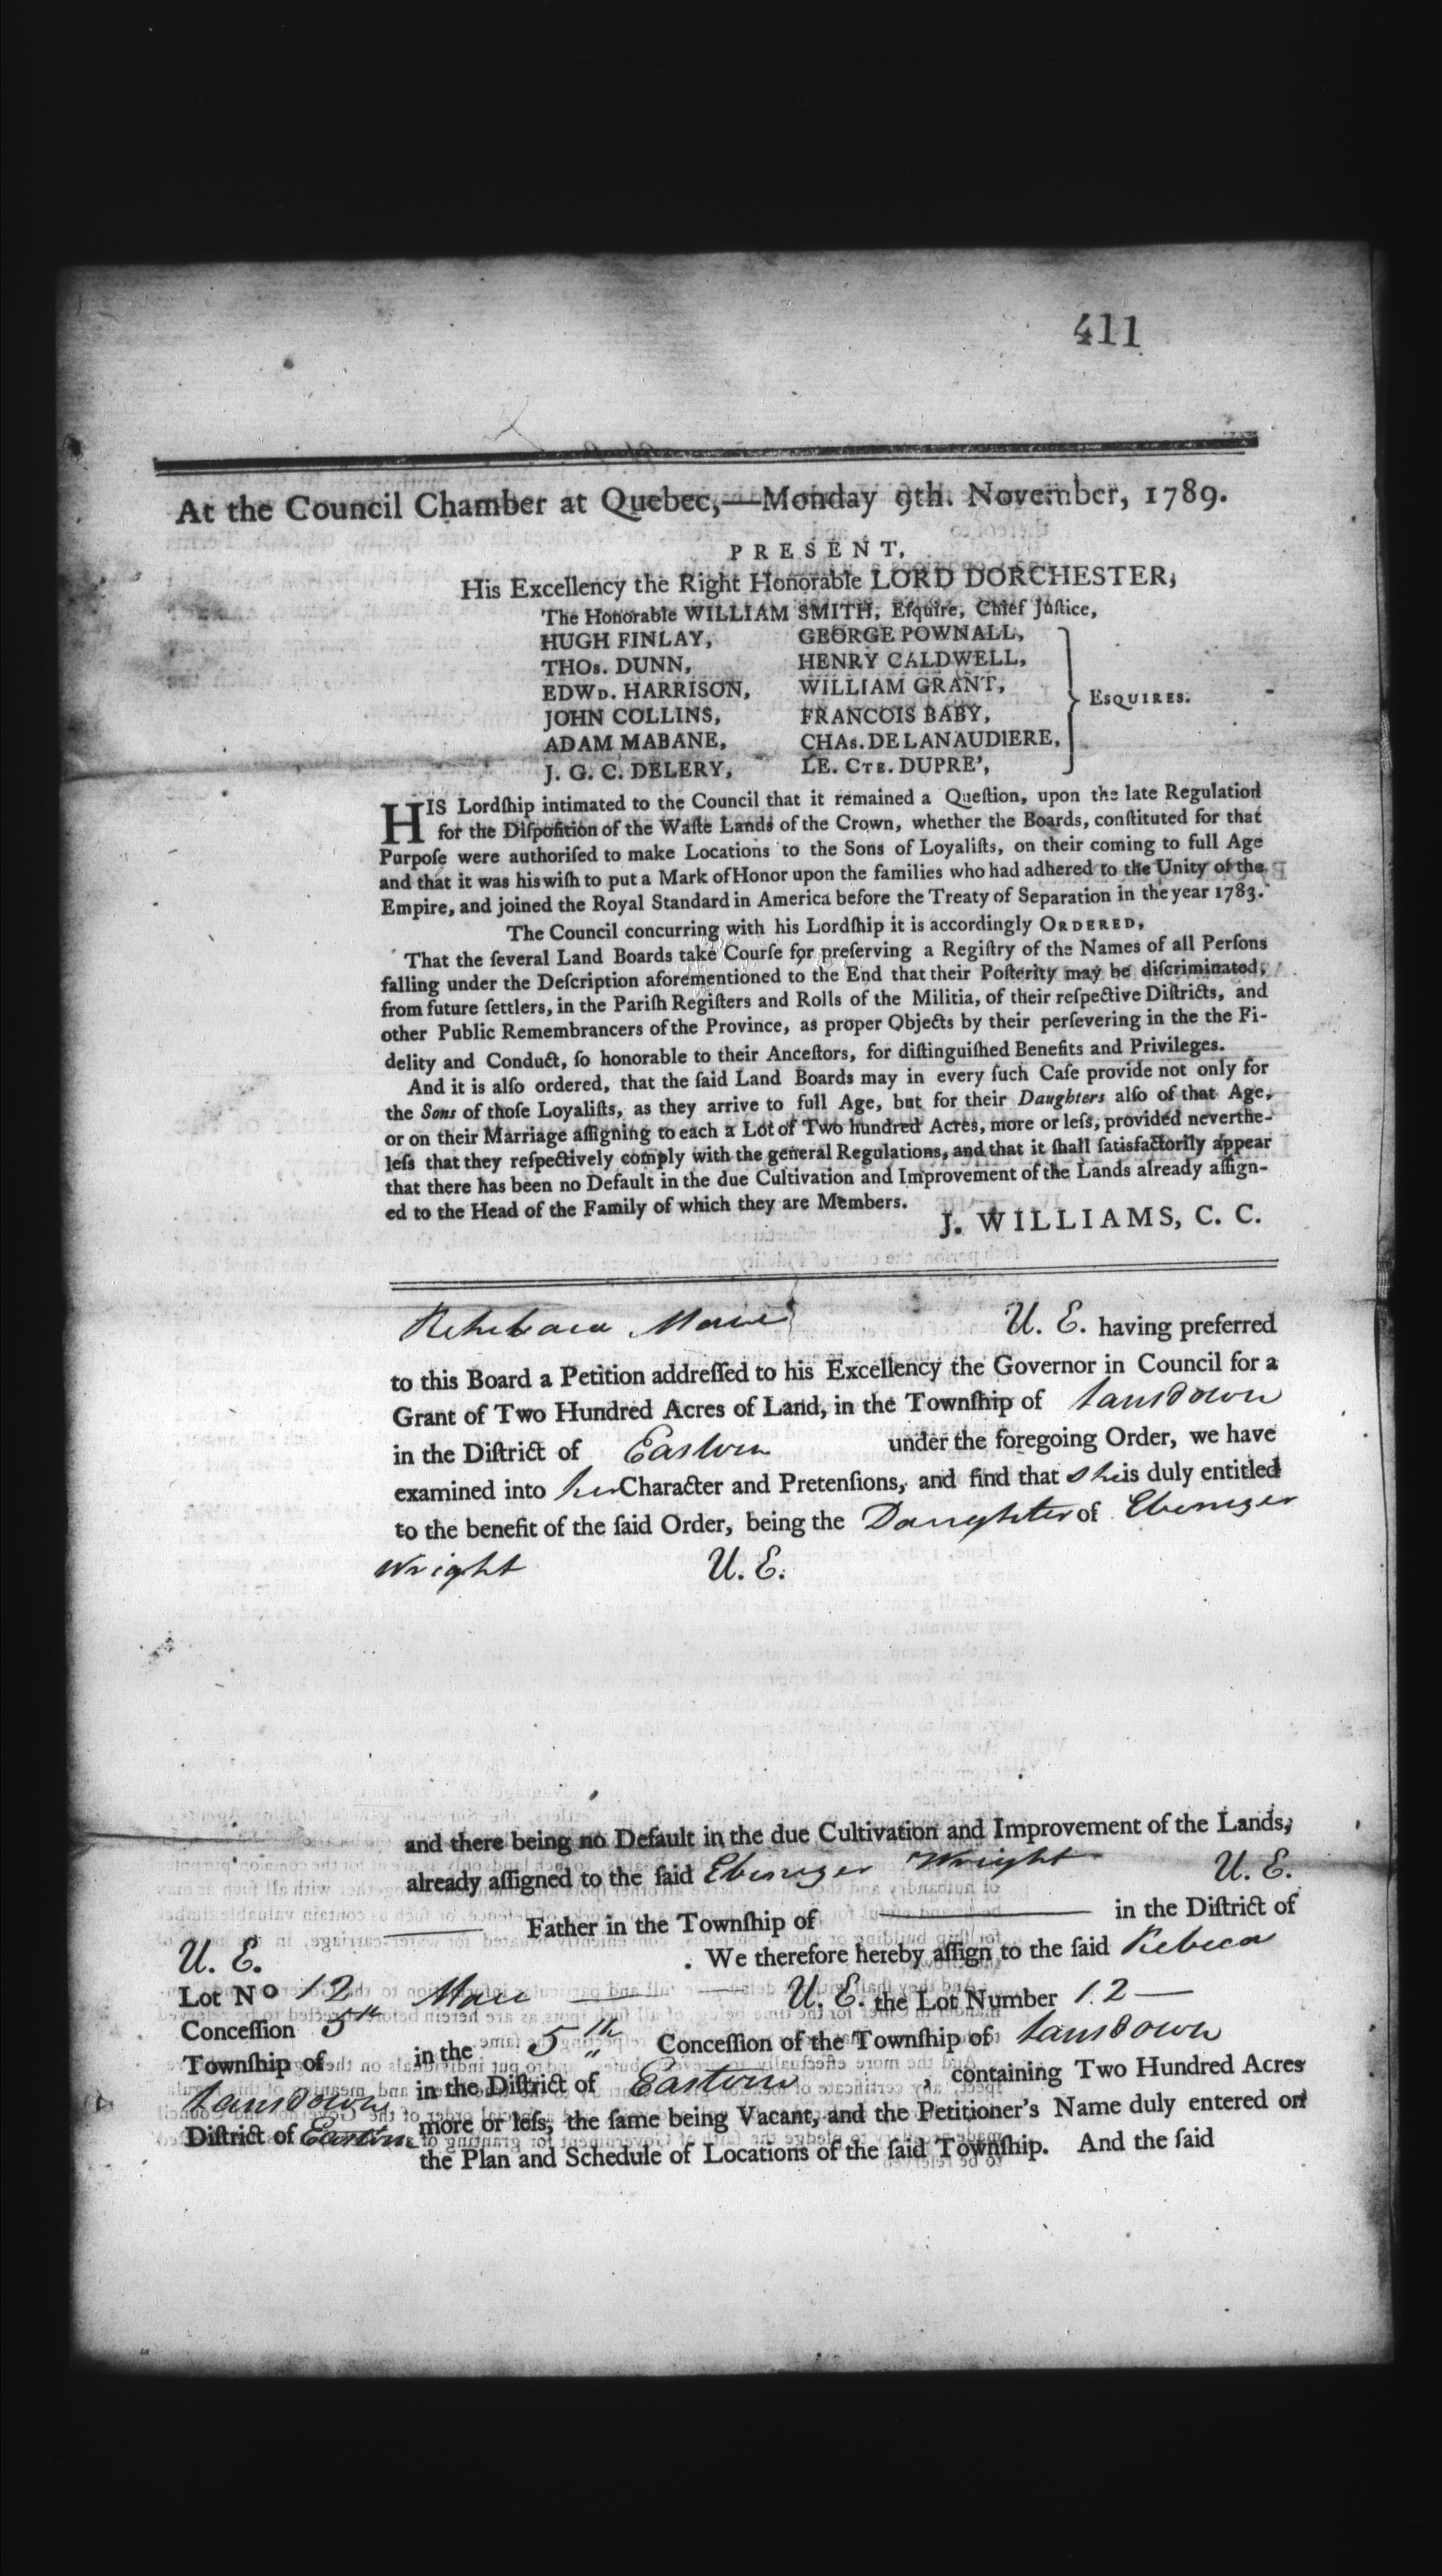 411
At the Council Chamber at Quebec,—Monday 9th. November, 1789.
PRESENT,
His Excellency the Right Honorable LORD DORCHESTER,
The Honorable WILLIAM SMITH, Eſquire, Chief Juſtice,
HUGH FINLAY, GEORGE POWNALL,
THOs. DUNN, HENRY CALDWELL,
EDWD. HARRISON, WILLIAM GRANT,
JOHN COLLINS, FRANCOIS BABY,
ADAM MABANE, CHAs. DE LANAUDIERE,
J. G. C. DELERY, LE. CTE. DUPRE',
ESQUIRES.
HIS Lordſhip intimated to the Council that it remained a Queſtion, upon the late Regulation
for the Diſpoſition of the Waſte Lands of the Crown, whether the Boards, conſtituted for that
Purpoſe were authoriſed to make Locations to the Sons of Loyaliſts, on their coming to full Age
and that it was his wiſh to put a Mark of Honor upon the families who had adhered to the Unity of the
Empire, and joined the Royal Standard in America before the Treaty of Separation in the year 1783.
The Council concurring with his Lordſhip it is accordingly ORDERED,
That the ſeveral Land Boards take Courſe for preſerving a Regiſtry of the Names of all Perſons
falling under the Deſcription aforementioned to the End that their Poſterity may be diſcriminated,
from future ſettlers, in the Pariſh Regiſters and Rolls of the Militia, of their reſpective Diſtricts, and
other Public Remembrancers of the Province, as proper Objects by their perſevering in the the Fi-
delity and Conduct, ſo honorable to their Anceſtors, for diſtinguiſhed Benefits and Privileges.
And it is alſo ordered, that the ſaid Land Boards may in every ſuch Caſe provide not only for
the Sons of thoſe Loyaliſts, as they arrive to full Age, but for their Daughters alſo of that Age,
or on their Marriage aſſigning to each a Lot of Two hundred Acres, more or leſs, provided neverthe-
leſs that they reſpectively comply with the general Regulations, and that it ſhall ſatisfactorily appear
that there has been no Default in the due Cultivation and Improvement of the Lands already aſſign-
ed to the Head of the Family of which they are Members.
J. WILLIAMS, C. C.
U. E. having preferred
to this Board a Petition addreſſed to his Excellency the Governor in Council for a
Grant of Two Hundred Acres of Land, in the Townſhip of Lansdown
in the Diſtrict of Eastern under the foregoing Order, we have
examined into her Character and Pretenſions, and find that she is duly entitled
to the benefit of the ſaid Order, being the Daughter of Ebenezer
Wright U. E.
and there being no Default in the due Cultivation and Improvement of the Lands,
already aſſigned to the ſaid Ebenezer Wright U. E.
Father in the Townſhip of — in the Diſtrict of
. We therefore hereby aſſign to the ſaid Rebeca
U. E. the Lot Number 12 —
in the 5th Conceſſion of the Townſhip of Lansdown
in the Diſtrict of Eastern , containing Two Hundred Acres
more or leſs, the ſame being Vacant, and the Petitioner's Name duly entered on
the Plan and Schedule of Locations of the ſaid Townſhip. And the ſaid
U. E.
Lot No 12
Conceſſion 5th
Townſhip of
Lansdown
Diſtrict of Eastern